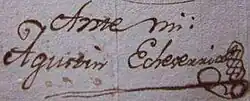 Ante mi:
Agustin Echeverria